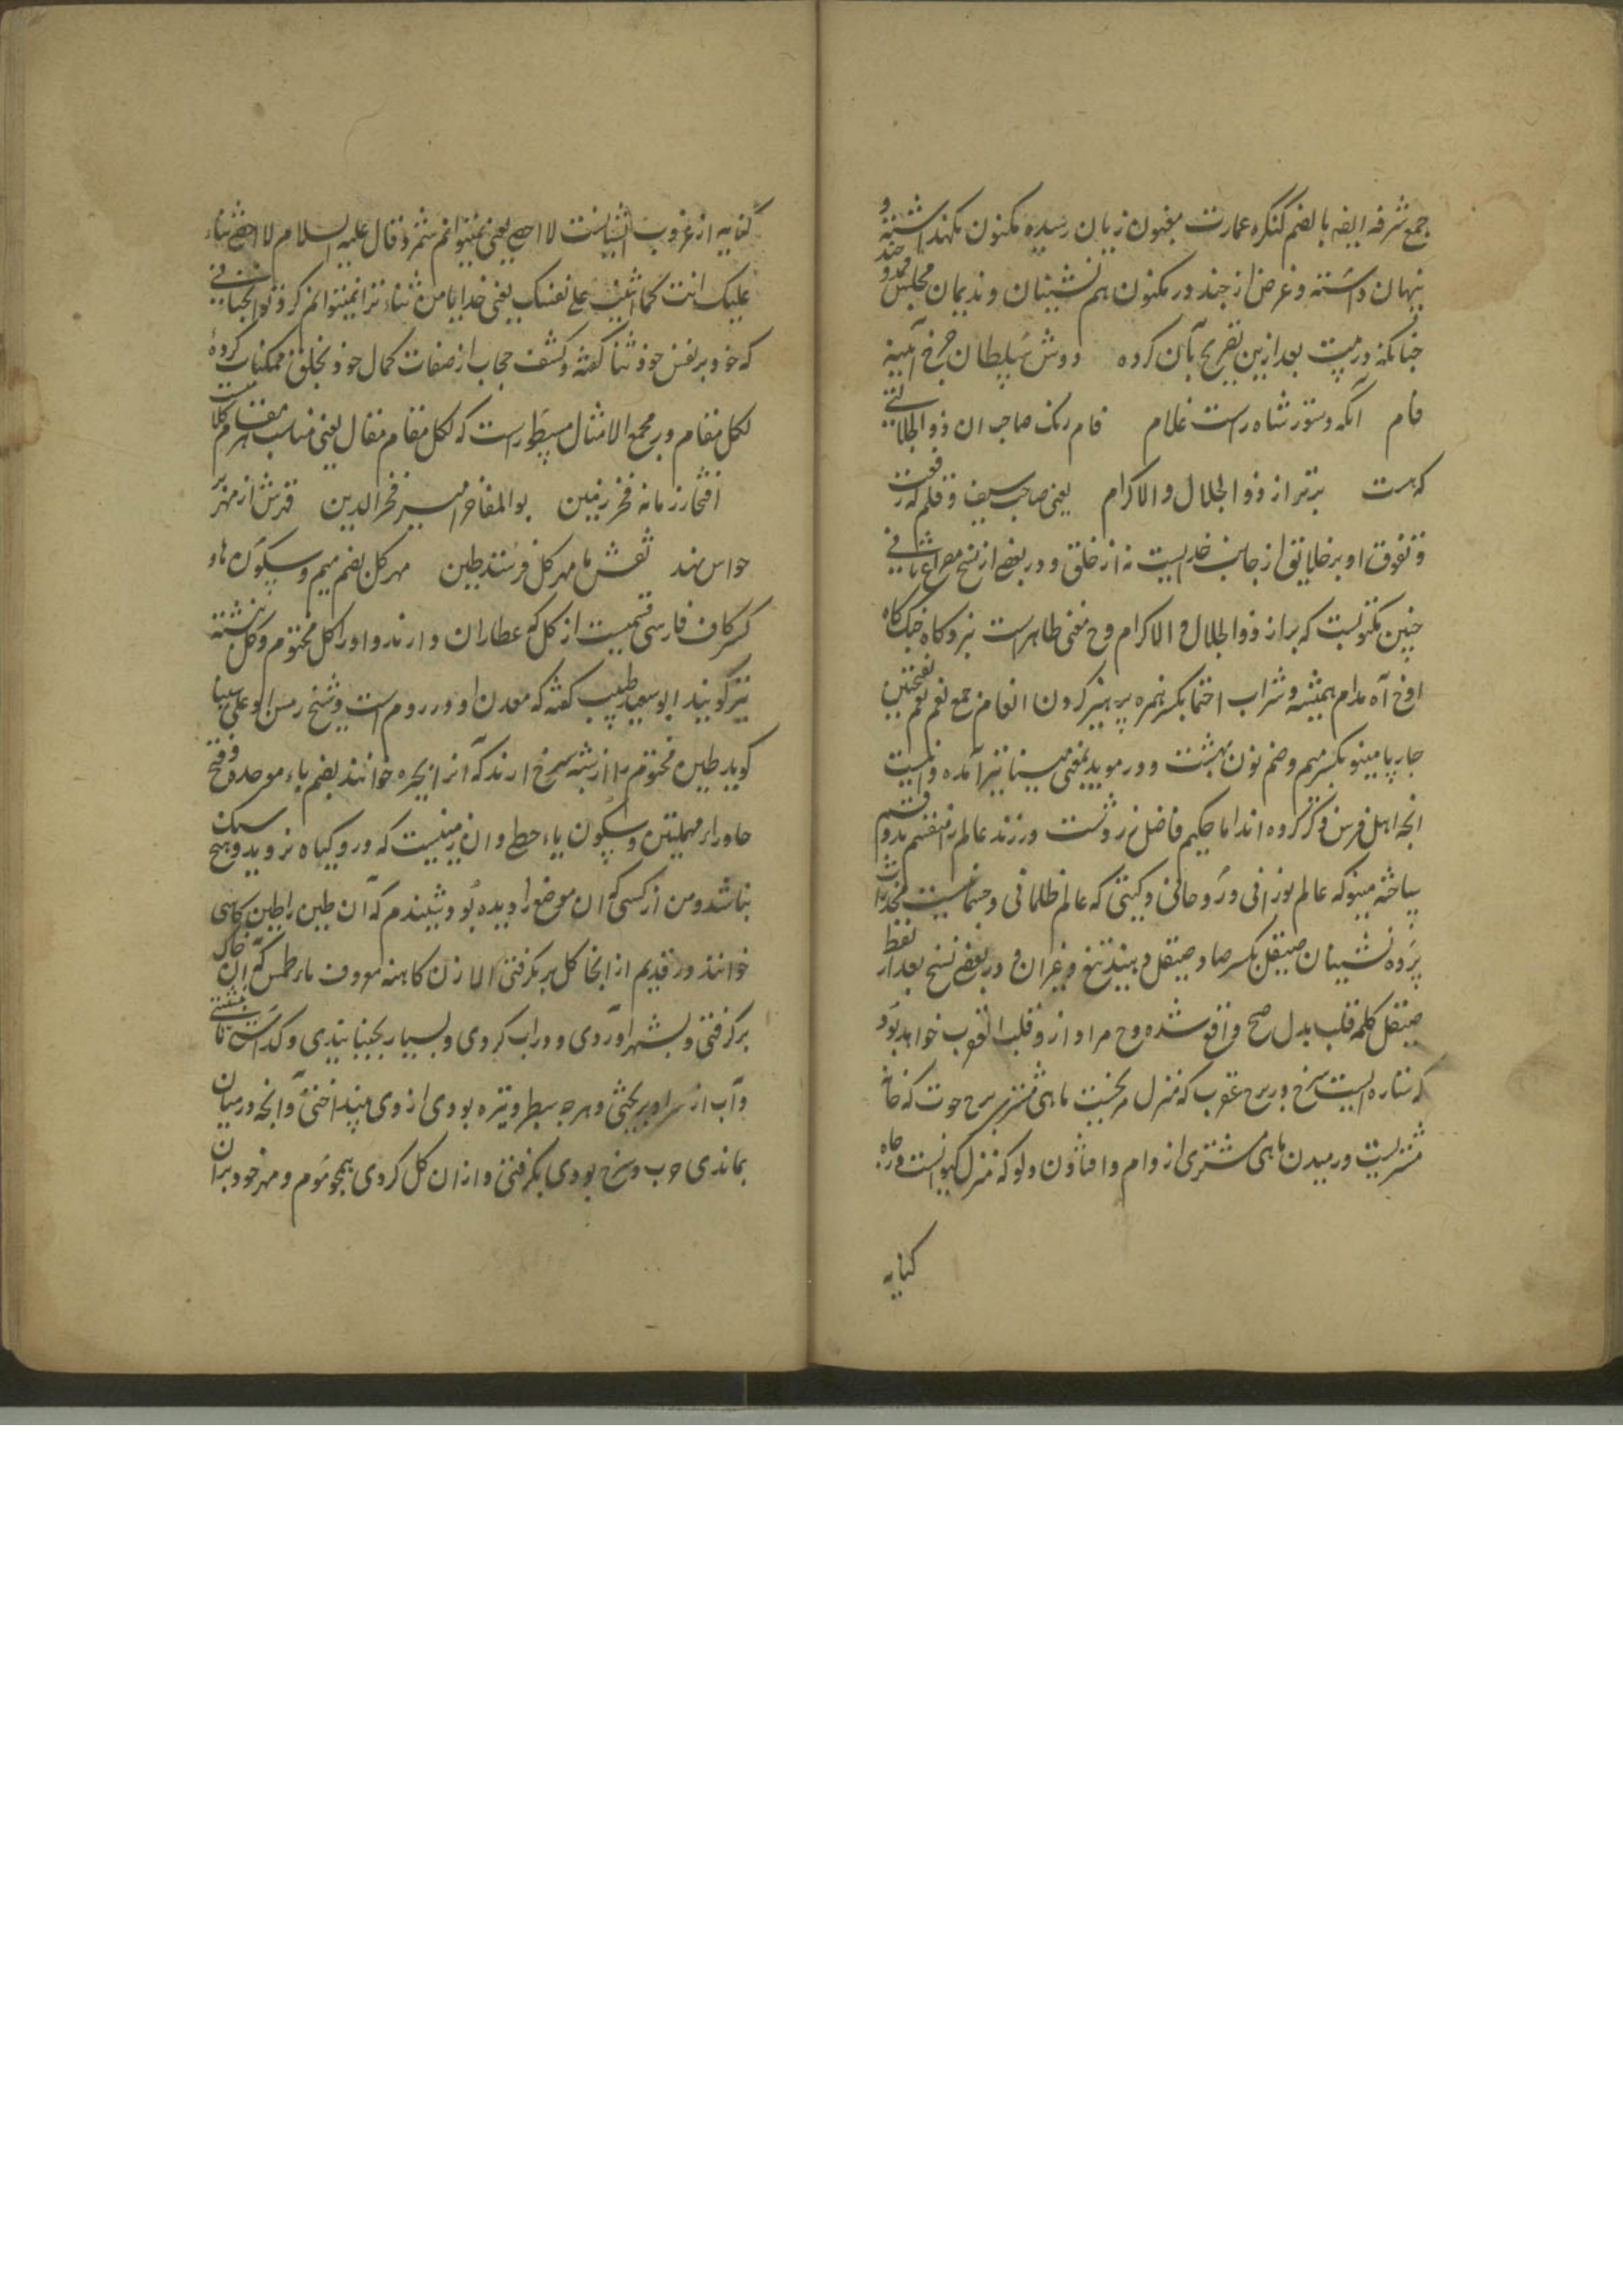 جمع شرفه ایضه بالضم کنگره عمارت مغبون زیان رسیده مکنون نکهداشته و
پنهان داشته و غرض از چند در مکنون هم نشینان و ندیمان مجلس ممدوحند
چنانکه در بیت بعد ازین تصریح بآن کرده دوش سلطان چرخ آینه
فام آنکه دستور شاه راست غلام فام رنک صاحب ان ذو الجلالتی
که هست برتر از ذو الجلال والاکرام یعنی صاحب سیف و قلم که رفعت
و تفوق او بر خلایق از جانب خداییست نه از خلق و در بعضی از نسخ مصراع ثانی
چنین مکتوبست که براز ذوالجلال والاکرام وح معنی ظاهر است نبردکاه جنک کاه
اوخ آه مدام همیشه و شراب احتما بکسر همزه پرهیز کردن انعام جمع نعم نعم بفتحتین
چارپا مینو بکسر میم و ضم نون بهشت و در موید بمعنی مینا نیز آمده و اینست
انچه اهل فرس ذکر کرده اند اما حکیم فاضل زردشت در زند عالم را منقسم بدو قسم
ساخته مینو که عالم نورانی و روحانی و کیتی که عالم ظلمانی و جسمانیست مخدرات
پرده نشینان صیقل بکسر صاد صیقل دهند تیغ و غیران و در بعضی نسخ بعد از لفظ
صیقل کلمه قلب بدل صح واقع شده وح مراد ازو قلب العقرب خواهد بود
که ستاره ایست سرخ در برج عقرب که منزل مریخیست ماهی مشتری برج حوت که خانه
مشتریست و رمیدن ماهی مشتری از دام و افتادن دلو که منزل کیوانست در چاه
کنایه
کنایه از غروب انهاست لا احصی یعنی نمیتوانم شمرد قال علیه السلام لا احصی ثناء
علیک انت کما اثنیت علی نفسک یعنی خدایا من ثناء ترا نمیتوانم کرد تو انچنانی
که خود بر نفس خود ثنا کفته و کشف حجاب از صفات کمال خود بخلق ممکنات کردهٔ
لکل مقام در مجمع الامثال مسطور است که لکل مقام مقال یعنی مناسب هر مقام کلامیست
افتخار زمانه فخر زمین بوالمفاخر امیر فخرالدین قدرش از مهر بر
حواس نهد نقش با مهر کل فرستد طین مهر کل بضم میم و سکون ها و
کسر کاف فارسی قسمیست از کل که عطاران دارند و او را کل مختوم و کل نبشته
نیز گویند ابو سعید طبیب کفته که معدن او در روم است و شیخ رئیس ابو علی سینا
کوید طین مختوم را از پشته سرخ ارند که آنرا بحیره خوانند بضم باء موحده و فتح
حا و راء مهملتین و سکون یاء حطی و ان زمینیست که در و کیاه نروید و هیچ سنک
نباشد و من از کسی که ان موضع را دیده بود شنیدم که آن طین را طین کاهنی
خوانند و در قدیم از انجا کل بر نکرفتی الا زن کاهنه معروف بارطمس که ان خاک
برکرفتی و بشهر آوردی و در آب کردی و بسیار بجنبانیدی و بکذاشتی تا بنشستی
و آب از سر او بریختی و هرچه سطبر و تیره بودی از وی بینداختی و آنچه در میان
بماندی چرب و سرخ بودی بکرفتی و از ان کل کردی همچو موم و مهر خود بران